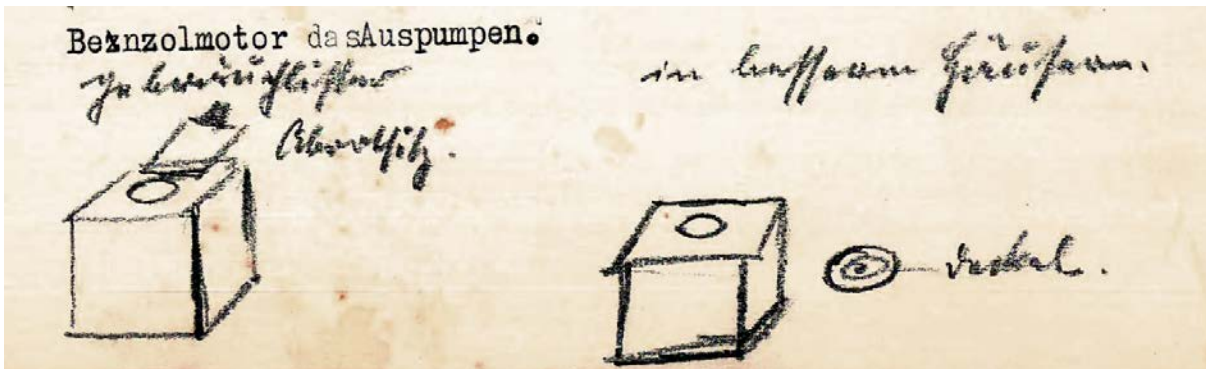 Beinzolmotor dasAuspumpen.
gebräuchlichster
Abortsitz.
in besseren Häusern.
Deckel.